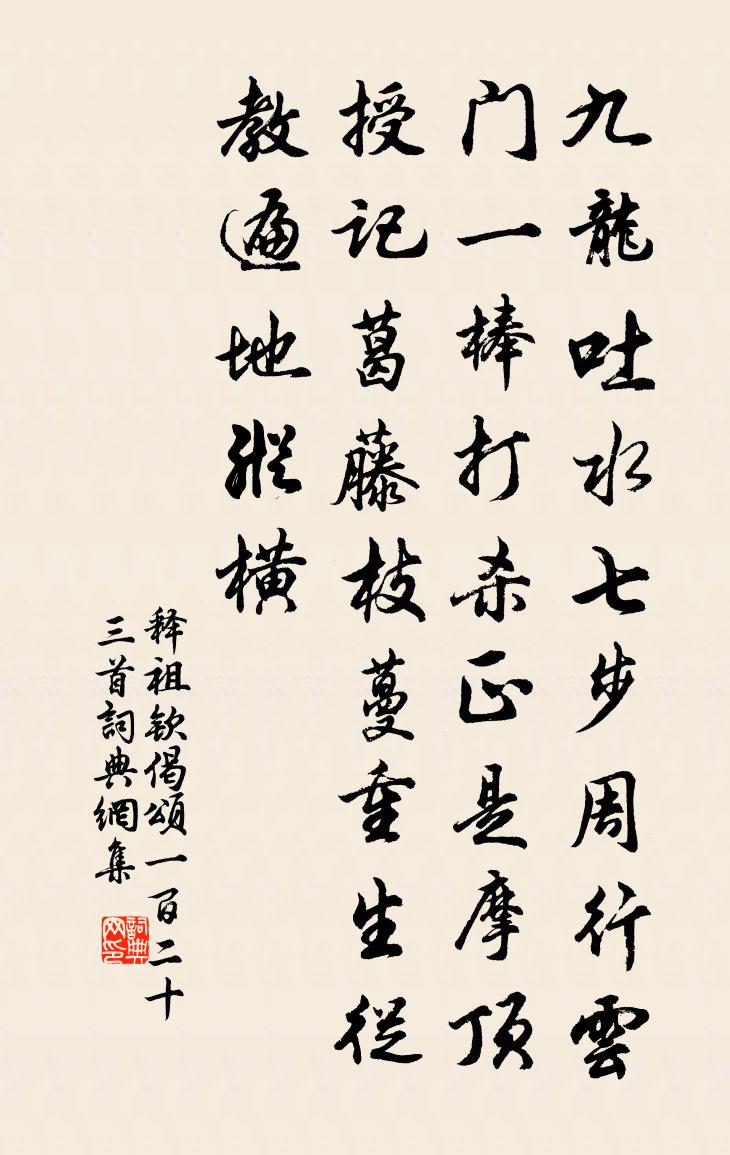 九龍吐水七步周行雲
门一棒打杀正是摩顶
授记葛藤枝蔓重生從
教遍地縱横
释祖钦偈頌一百二十
三首詞典網集
詞典网印